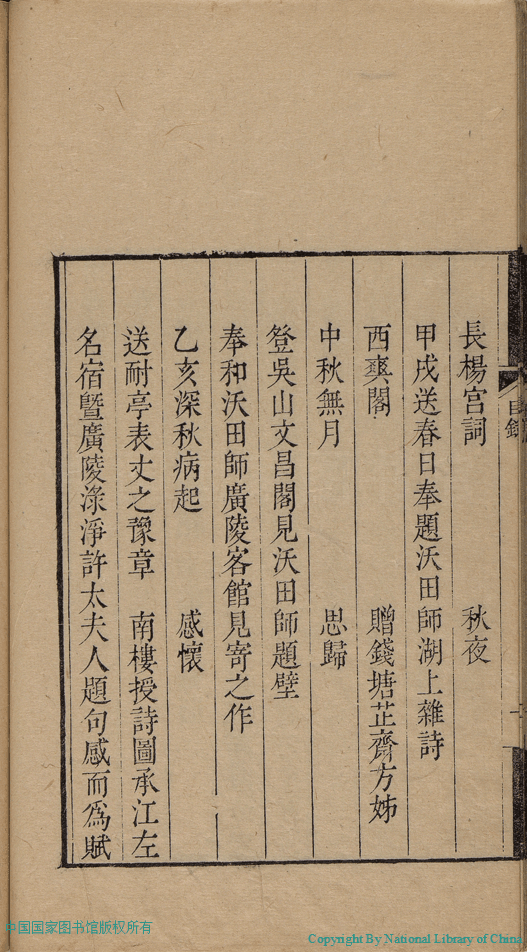 目錄
長楊宮詞 秋夜
甲戌送春日奉題沃田師湖上雜詩
西爽閣 贈錢塘芷齋方姊
中秋無月 思歸
登吳山文昌閣見沃田師題壁
奉和沃田師廣陵客館見寄之作
乙亥深秋病起 感懷
送耐亭表丈之豫章 南樓授詩圖承江左
名宿暨廣陵淥淨許太夫人題句感而爲賦
中国国家图书馆版权所有
Copyright By National Library of China